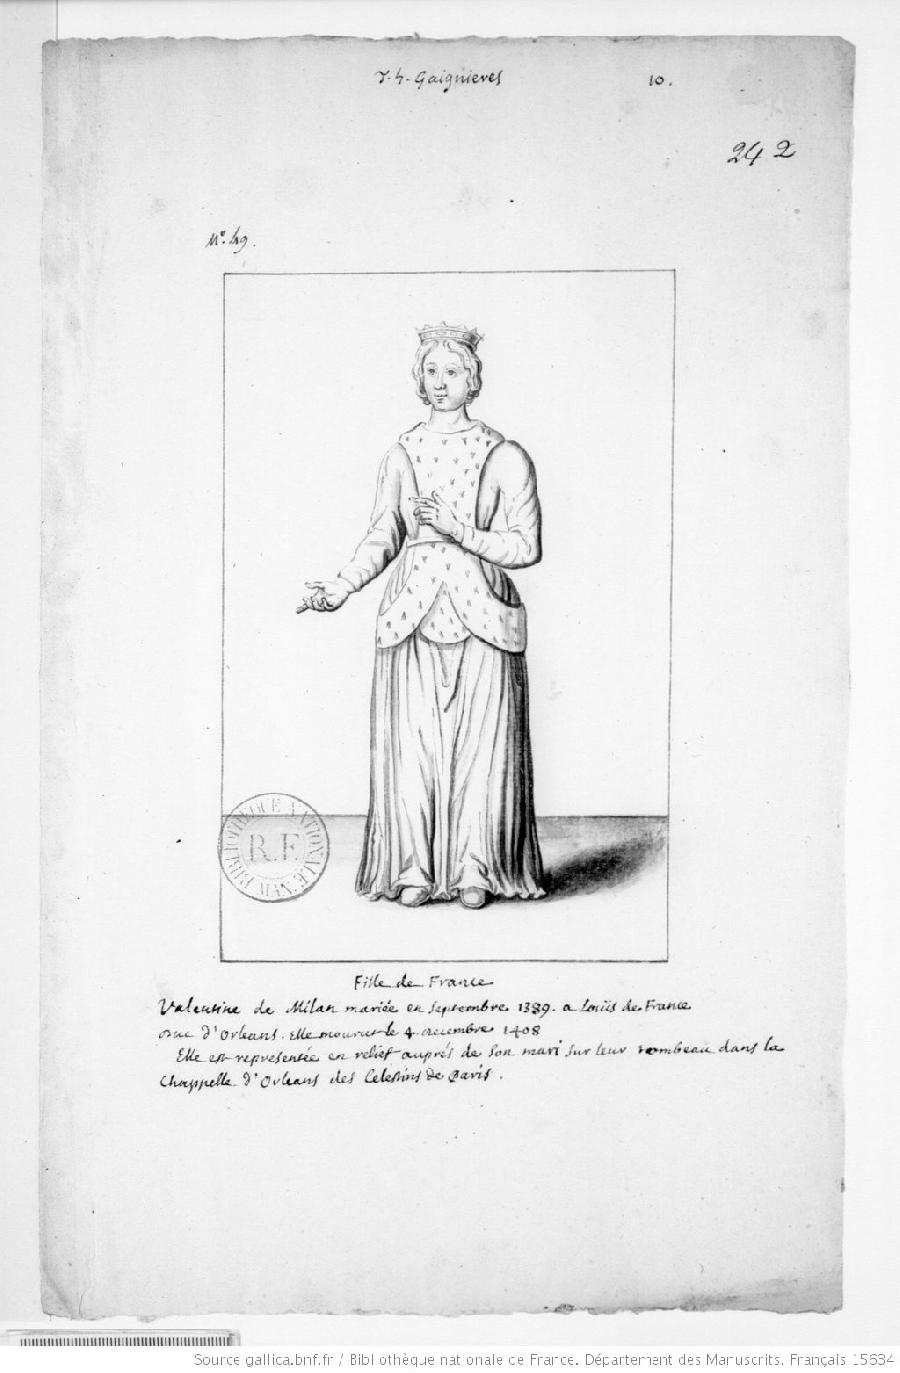 T. 4. Gaignieres 10.
242
N.° 49.
BIBLIOTHEQUE NATIONALE MAN
R.F
Fille de France
Valentine de Milan mariée en septembre 1389. a Loüis de France
Duc d'Orleans. Elle mourut le 4 decembre 1408
Elle est representée en relief auprés de son mari sur leur tombeau dans la
Chappelle d'Orleans des Celestins de Paris.
Source gallica.bnf.fr / Bibliothèque nationale de France. Département des Manuscrits. Français 15634